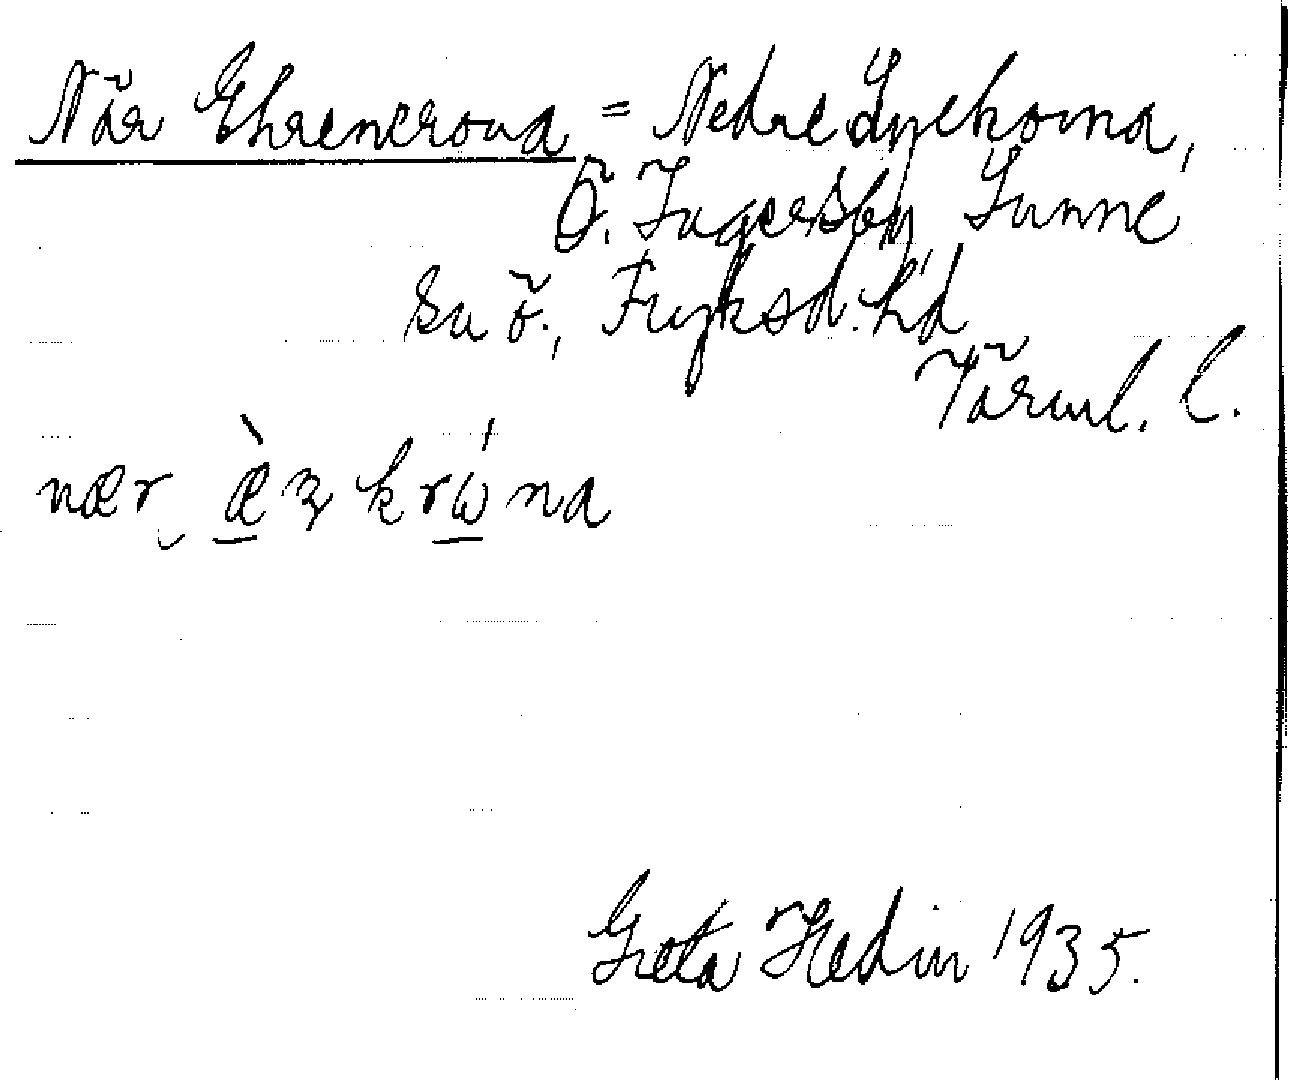 När Ehrencrona = Nedre Lyckorna,
Ö. Ingersby Sunne
sn ö., Fryksd. hd
Värml. l.
nær æ̀ʒ krω´na
Greta Hedin 1935.